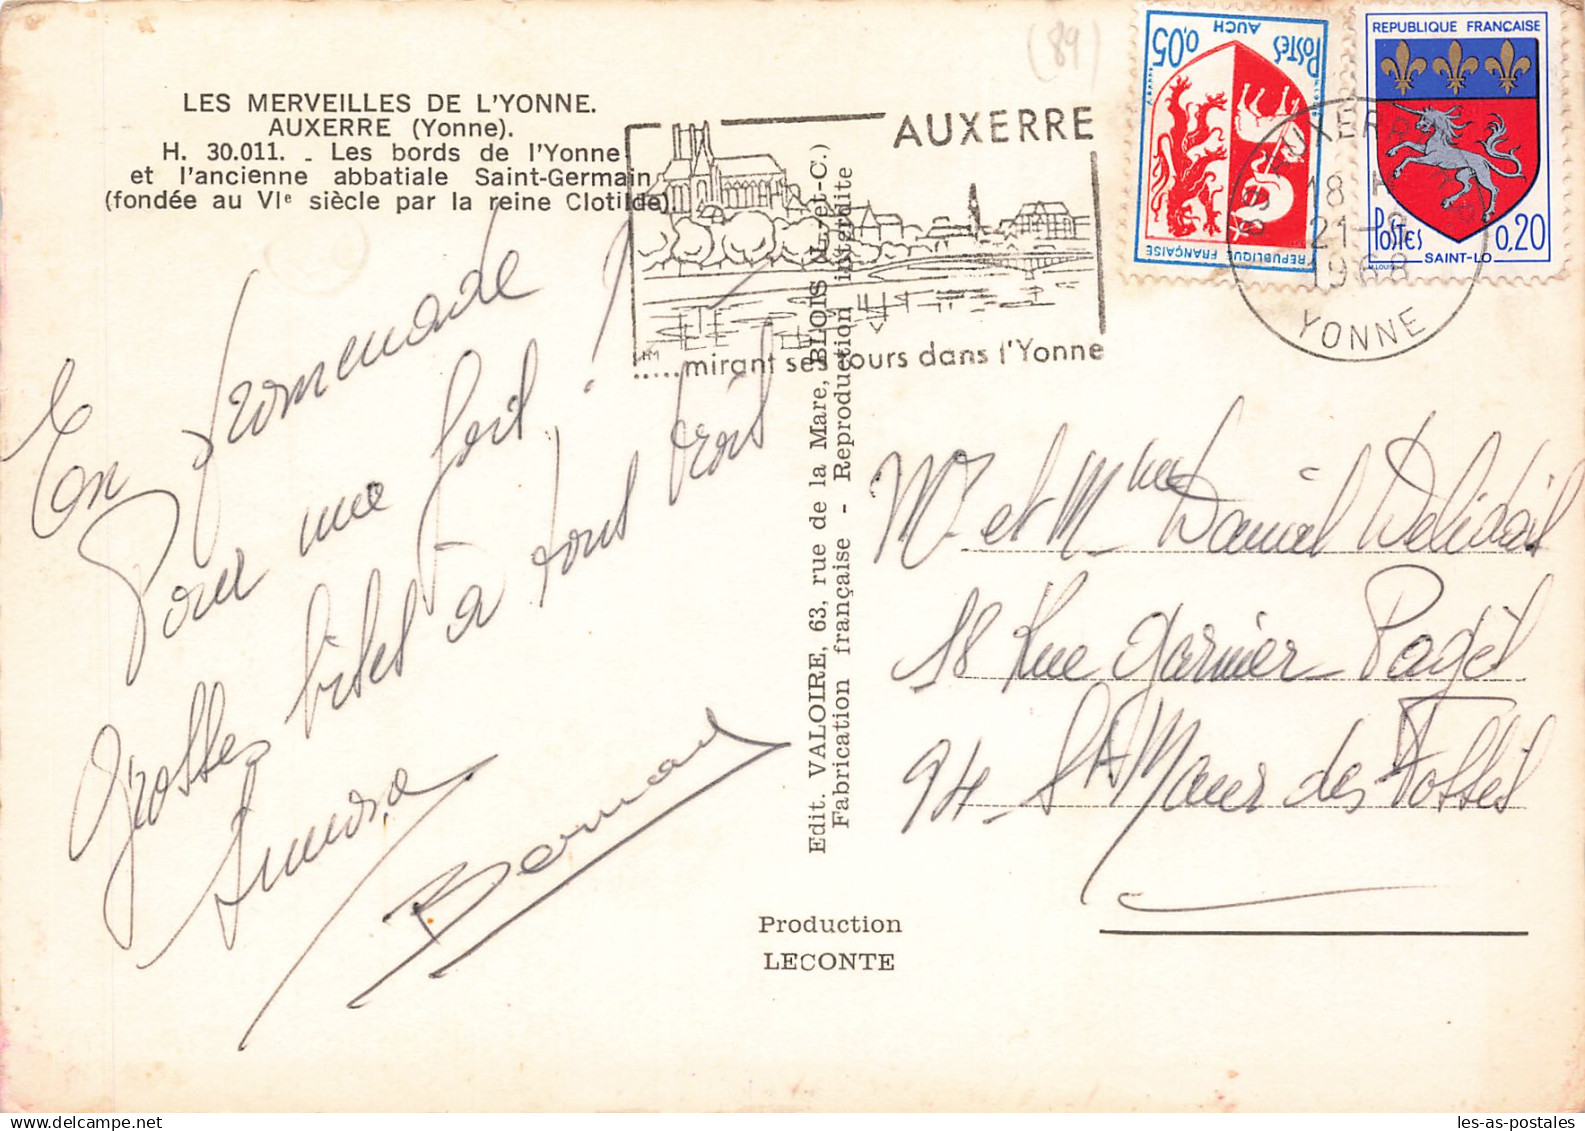 (89)
LES MERVEILLES DE L'YONNE.
AUXERRE (Yonne).
H. 30.011. - Les bords de l'Yonne
et l'ancienne abbatiale Saint-Germain
(fondée au VIe siècle par la reine Clotilde).
AUXERRE
.....mirant ses tours dans l'Yonne
POSTES
AUCH
0,05
REPUBLIQUE FRANÇAISE
REPUBLIQUE FRANÇAISE
POSTES
0,20
SAINT-LO
89 AUXERRE
18 H
21-
1968
YONNE
En promenade
Pour une fois !
Grosses bises à tous trois
Bernard
Edit. VALOIRE, 63, rue de la Mare, BLOIS (L.-et-C.)
Fabrication française - Reproduction interdite
Mr et Mme Daniel
18 Rue Garnier Pagès
94 - St Maur des Fossés
Production
LECONTE
les-as-postales